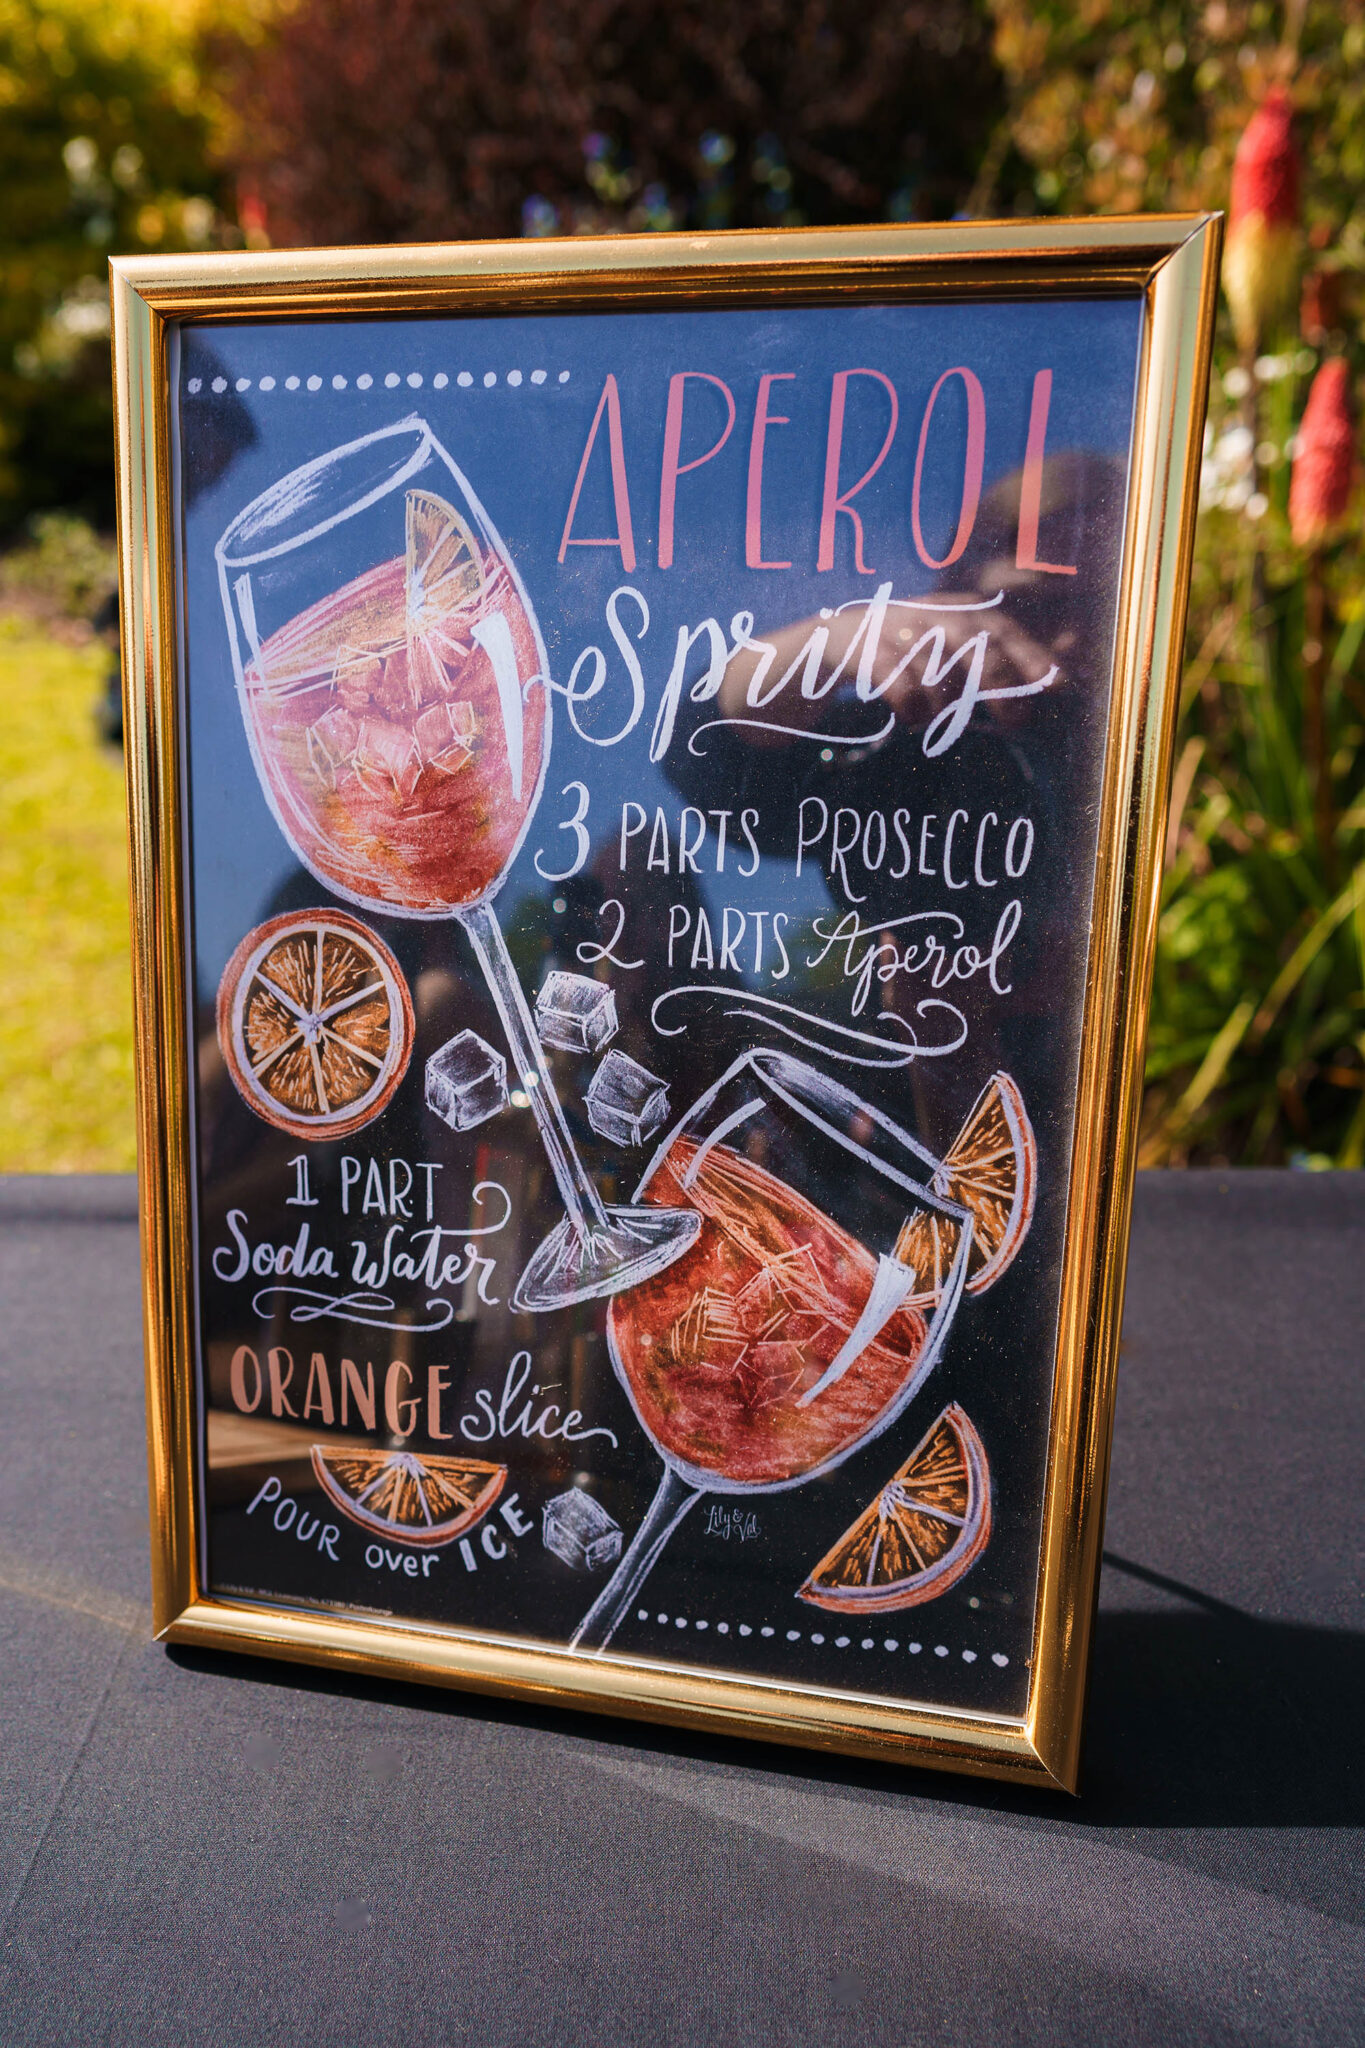 APEROL
Spritz
3 PARTS PROSECCO
2 PARTS Aperol
1 PART
Soda Water
ORANGE slice
POUR over ICE
Lily & Val